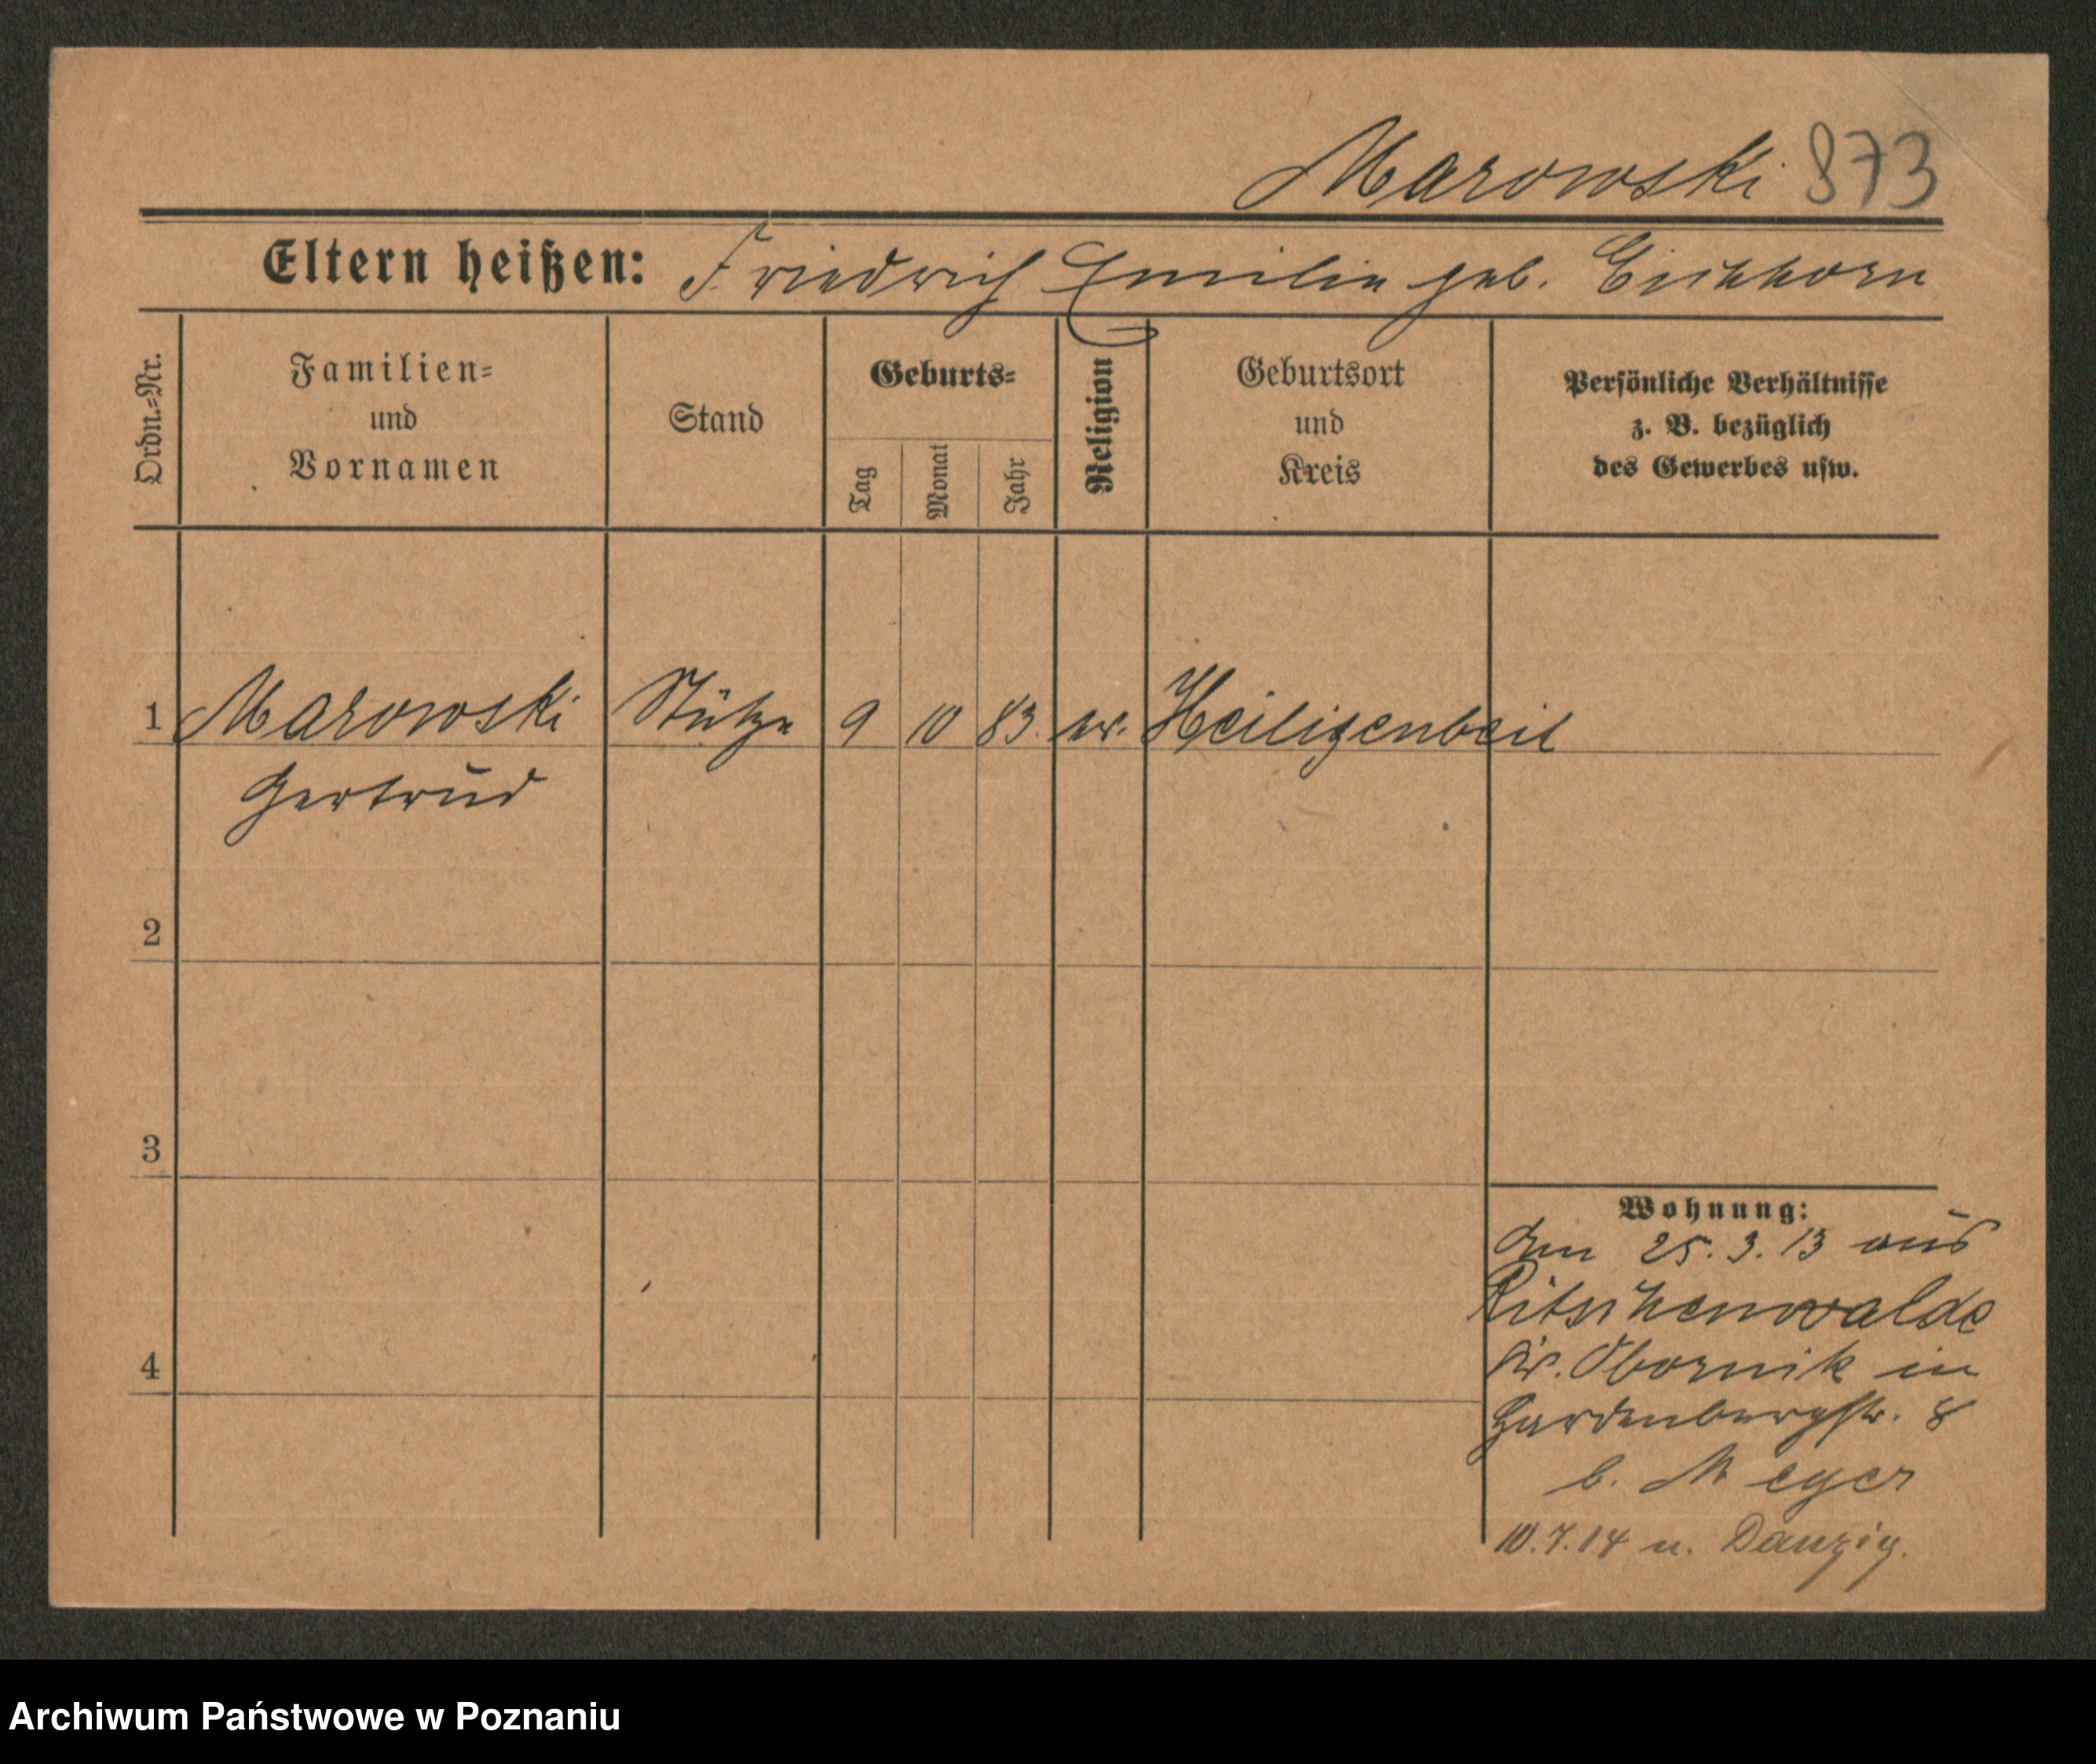 Marowski 873
Eltern heißen: Friedrich Emilie geb. Eichhorn
Ordn.-Nr.
Familien-
und
Vornamen
Stand
Geburts-
Tag
Monat
Jahr
Religion
Geburtsort
und
Kreis
Persönliche Verhältnisse
z. B. bezüglich
des Gewerbes usw.
1 Marowski Stütze 9 10 83. ev. Heiligenbeil
Gertrud
2
3
4
Wohnung:
Am 25. 3. 13 aus
Ritschenwalde
Kr. Obornik in
Hardenbergstr. 8
b. Meyer
10.7.14 n. Danzig.
Archiwum Państwowe w Poznaniu